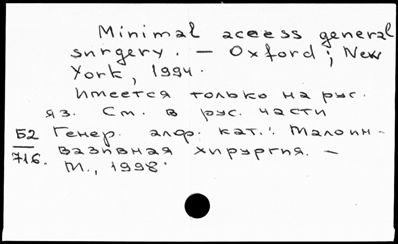 Minimal access general
surgery. - Oxford; New
York, 1994.
Имеется только на рус.
яз. См. в рус. части
Б2 Генер. алф. кат.: Малоин-
716. вазивная хирургия. -
М., 1998.